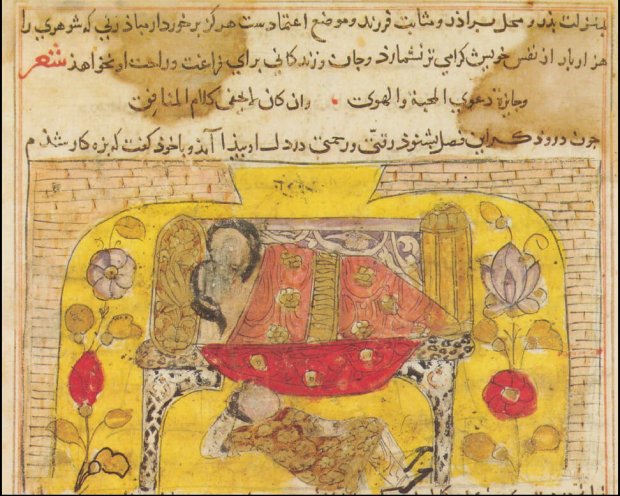 بمنزلت پدر و محل برادر و مثابت فرزند و موضع اعتمادست هرکز برخوردار مباذ زنی که شوهری را
هزار بار از نفس خویش کرامی تر نشمارد وجان وزندکانی برای فراغت وراحت او نخواهذ شعر
وجائزة دعوی المحبة والهوی وان کان لایخفی کلام المنافق
جون درودکر این فصل بشنوذ رقتی ورحمتی در دل او پیذا آمد و باخوذ کفت که بزه کار شذم